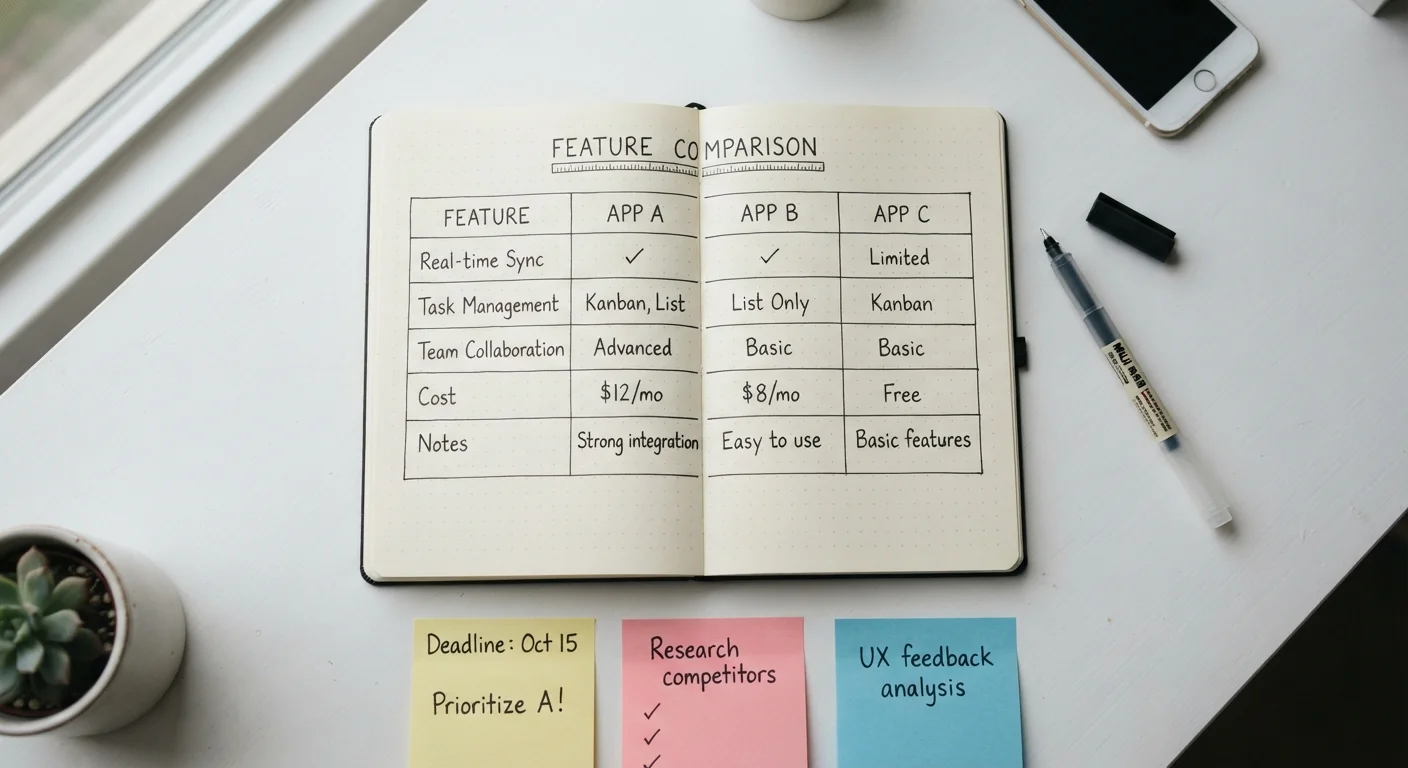 FEATURE COMPARISON
FEATURE APP A APP B APP C
Real-time Sync ✓ ✓ Limited
Task Management Kanban, List List Only Kanban
Team Collaboration Advanced Basic Basic
Cost $12/mo $8/mo Free
Notes Strong integration Easy to use Basic features
Deadline: Oct 15
Prioritize A!
Research
competitors
✓
✓
✓
UX feedback
analysis
MUJI